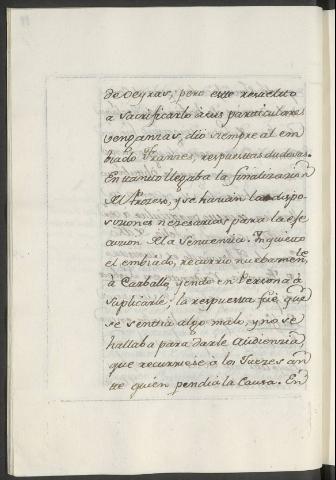 de Oeyras; pero este resuelto
a sacrificarlo à sus particulares
venganzas, dio siempre al em
biado Franzes, respuestas dudosas.
En tanto llegaba la finalizazion
del Prozeso, y se hazian las dispo
siziones nezesarias para la efe
cuzion de la Sentenzia. Inquieto
el embiado, recurrio nuebamente
à Carballo, yendo en Persona à
suplicarle; la respuesta fue, que
se sentia algo malo, y no se
hallaba para darle Audienzia,
que recurriese à los Juezes an
te quien pendia la Causa. En